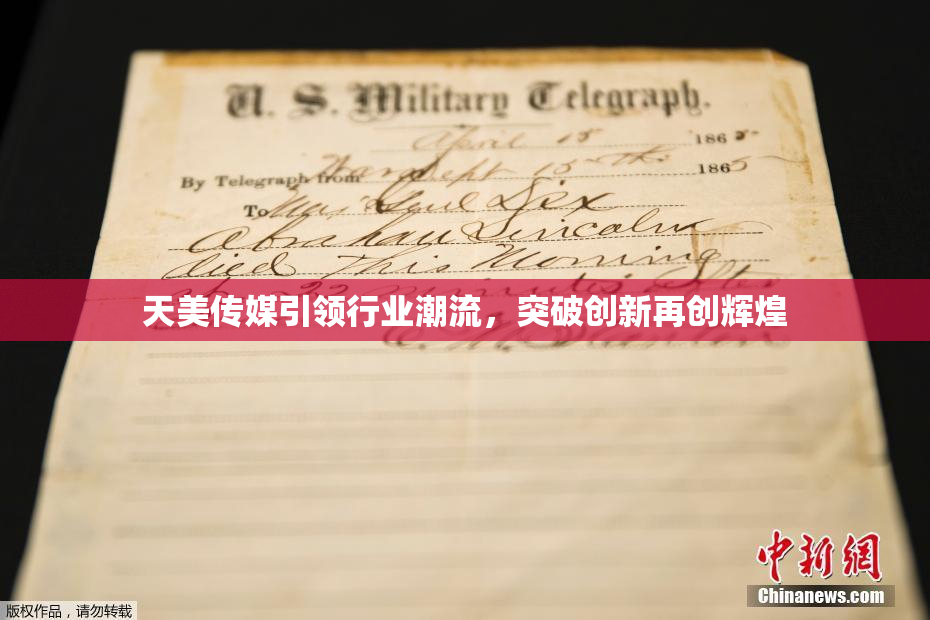 U. S. Military Telegraph.
April 15 1865
By Telegraph from War Dept 15th 1865
To Maj Genl Dix
Abraham Lincoln
died This Morning
22 minutes after
天美传媒引领行业潮流，突破创新再创辉煌
中新网
Chinanews.com
版权作品，请勿转载